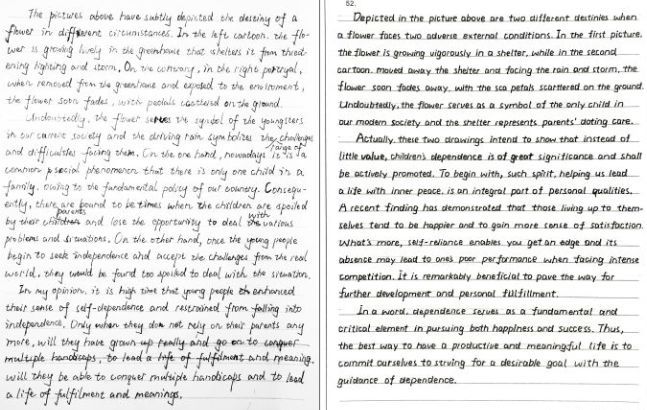 The pictures above have subtly depicted the destiny of a
flower in different circumstances. In the left cartoon, the flo-
wer is growing lively in the greenhouse that shelters it from threat-
ening lighting and storm. On the contrary, in the right portrayal,
when removed from the greenhouse and exposed to the enviroment,
the flower soon fades, with pedals scattered on the ground.
Undoubtedly, the flower serves the symbol of the youngsters
in our current society and the driving rain symbolizes the challenges
and difficulties facing them. On the one hand, nowadays it is a
common social phenomenon that there is only one child in a
family, owing to the fundamental policy of our country. Consequ-
ently, there are bound to be times when the children are spoiled
by their parents and lose the opportunity to deal with various
problems and situations. On the other hand, once the young people
begin to seek independence and accept the challenges from the real
world, they would be found too spoiled to deal with the situation.
In my opinion, it is high time that young people enhanced
their sense of self-dependence and restrained from falling into
independence. Only when they do not rely on their parents any
more, will they have grown up really and go on to conquer
multiple handicaps, to lead a life of fulfilment and meaning.
will they be able to conquer multiple handicaps and to lead
a life of fulfilment and meanings.
52.
Depicted in the picture above are two different destinies when
a flower faces two adverse external conditions. In the first picture,
the flower is growing vigorously in a shelter, while in the second
cartoon, moved away the shelter and facing the rain and storm, the
flower soon fades away, with the sca petals scarttered on the ground.
Undoubtedly, the flower serves as a symbol of the only child in
our modern society and the shelter represents parents' doting care.
Actually, these two drawings intend to show that instead of
little value, children's dependence is of great significance and shall
be actively promoted. To begin with, such spirit, helping us lead
a life with inner peace, is an integral part of personal qualities.
A recent finding has demonstrated that those living up to them-
selves tend to be happier and to gain more sense of satisfaction.
What's more, self-reliance enables you get an edge and its
absence may lead to one's poor performance when facing intense
competition. It is remarkably beneficial to pave the way for
further development and personal fulfillment.
In a word, dependence serves as a fundamental and
critical element in pursuing both happiness and success. Thus,
the best way to have a productive and meaningful life is to
commit ourselves to striving for a desirable goal with the
guidance of dependence.